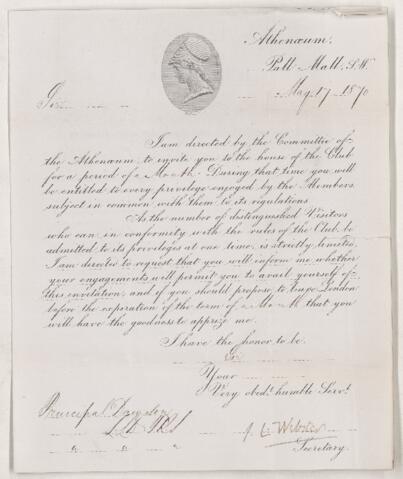 Athenæum,
Pall Mall, S.W.
May 17 1870
Sir
I am directed by the Committee of
the Athenæum, to invite you to the house of the Club
for a period of a Month. During that time you will
be entitled to every privilege enjoyed by the Members
subject in common with them to its regulations.
As the number of distinguished Visitors
who can in conformity with the rules of the Club, be
admitted to its privileges at one time, is strictly limited,
I am directed to request that you will inform me whether
your engagements will permit you to avail yourself of
this invitation, and if you should propose to leave London
before the expiration of the term of a Month that you
will have the goodness to apprize me.
I have the honor to be.
Sir
Your
Very obedt. humble Servt.
Principal Dawson
J. C. Webster
Secretary.